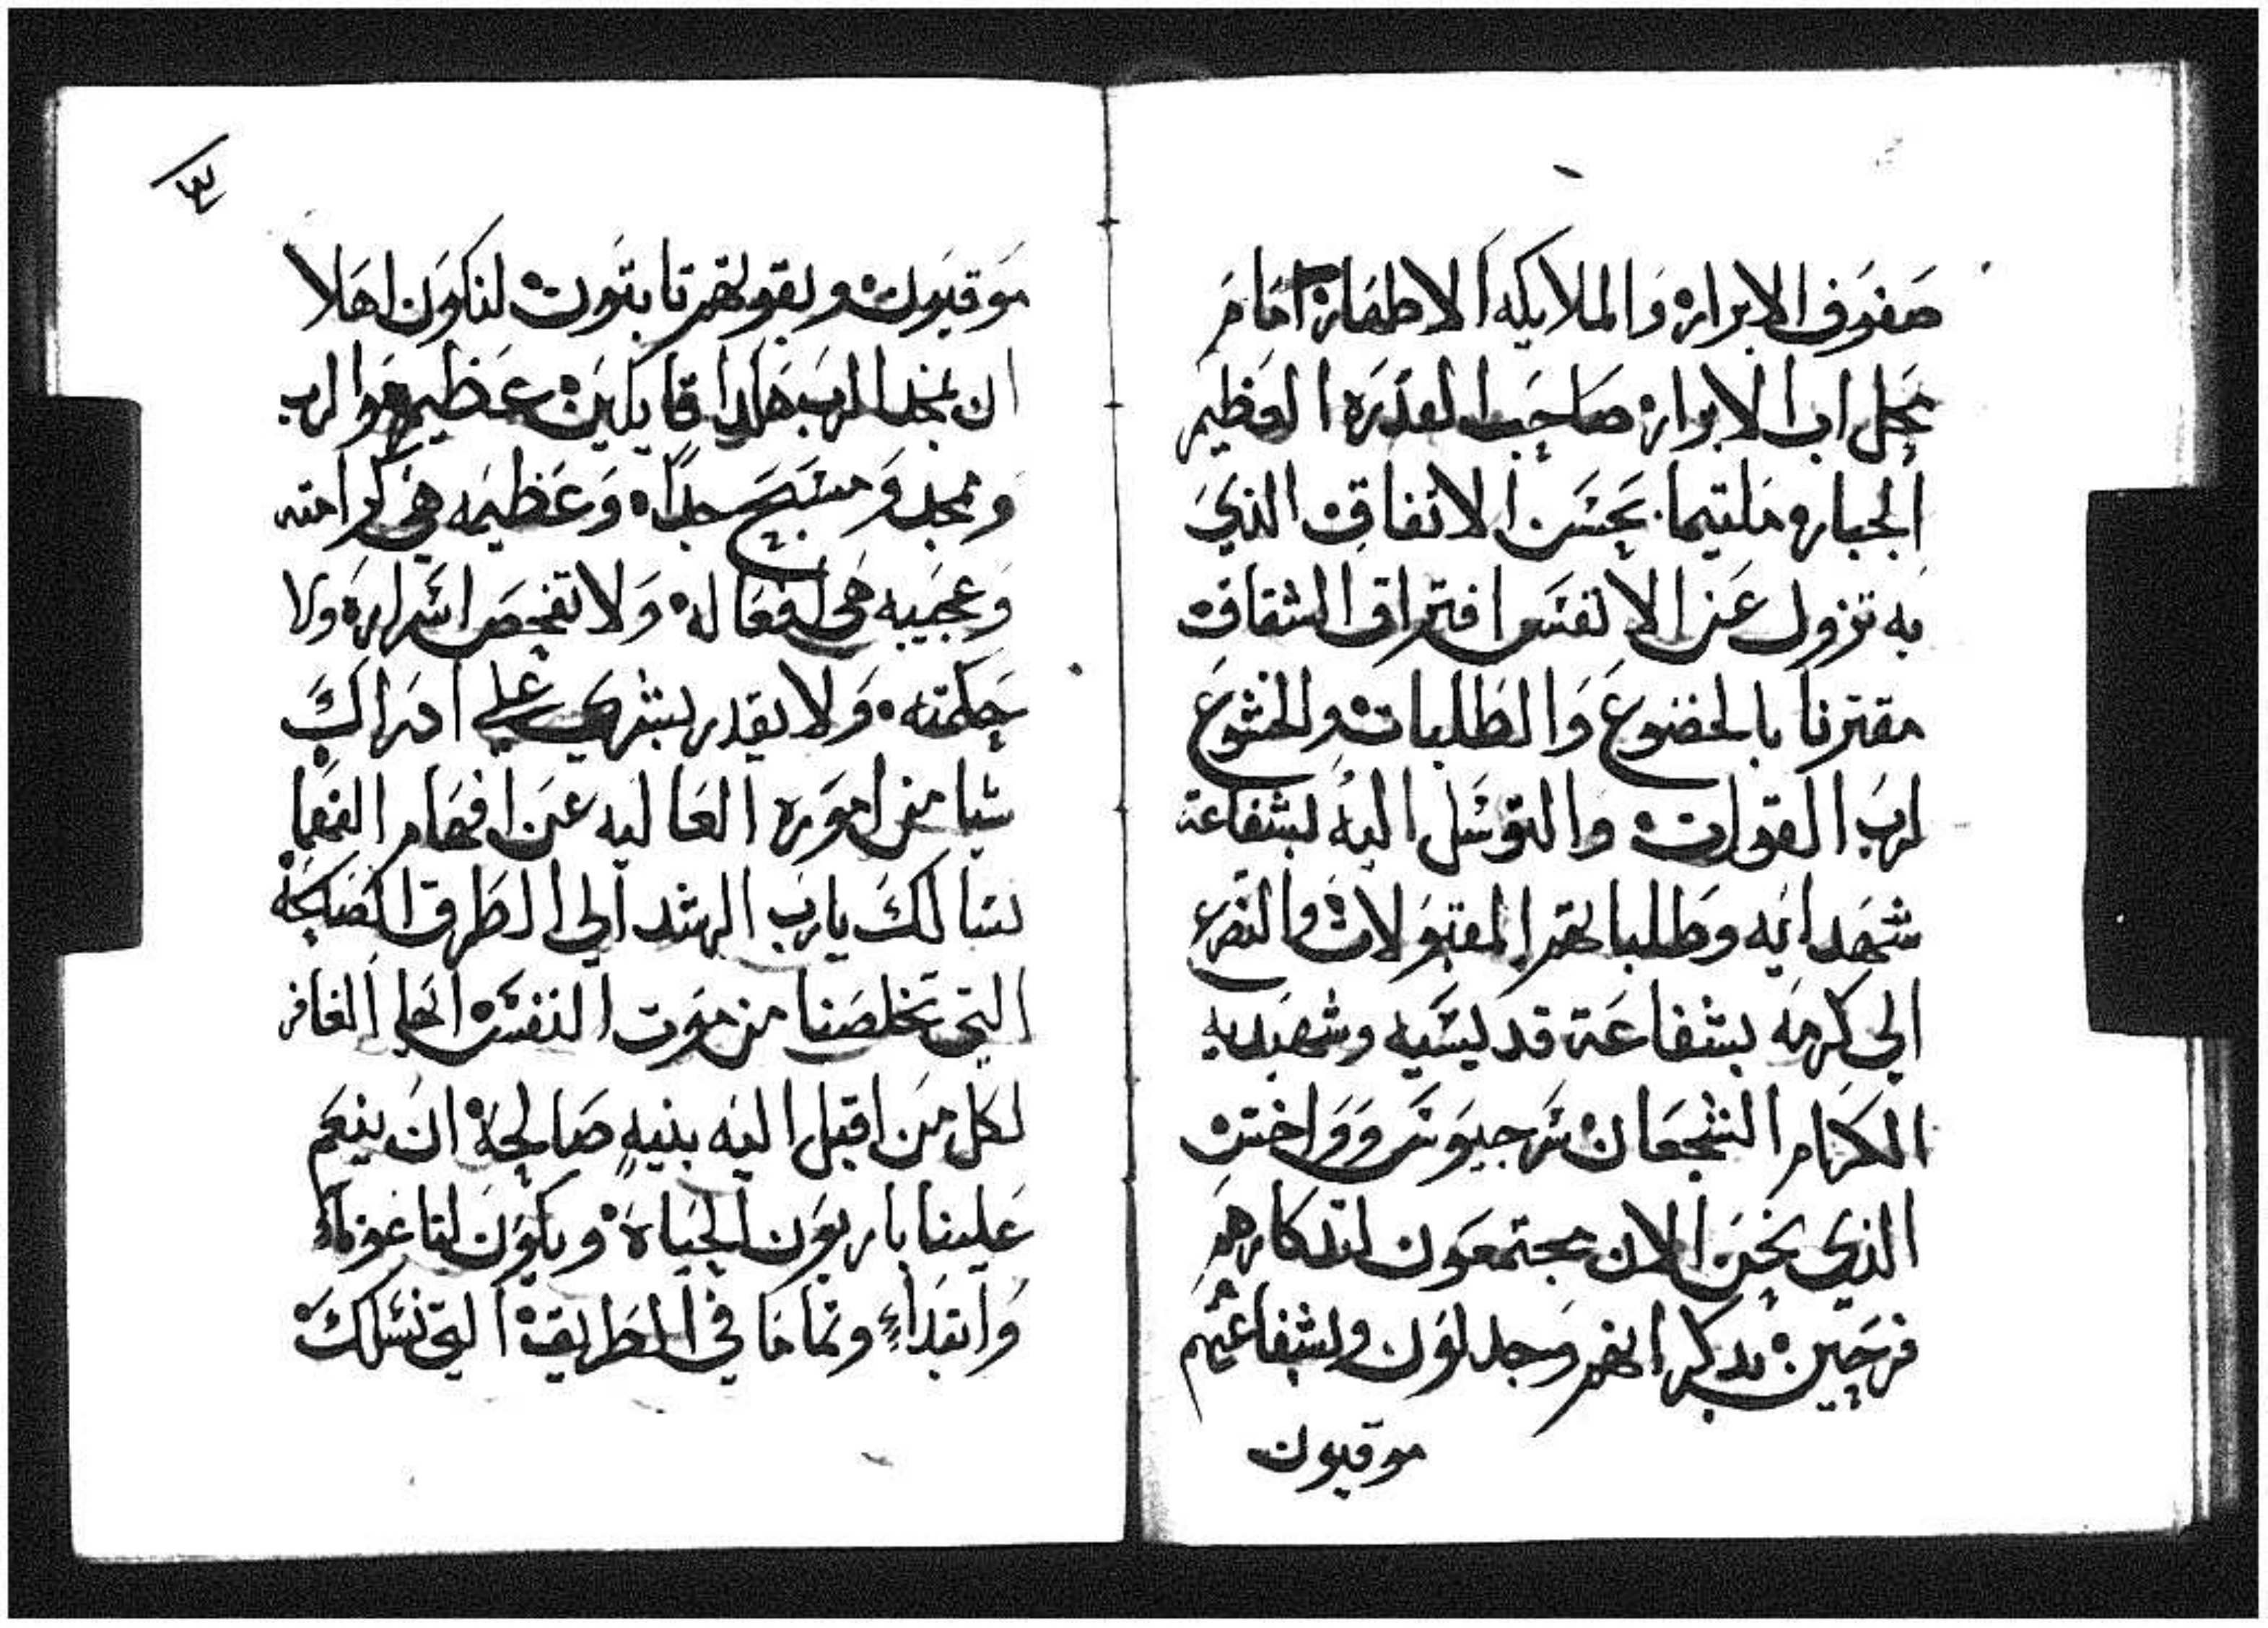 صفوف الابرار والملايكه الاطهار امام
نجل اب الابرار صاحب القدره العظيم
الجبار ملتيما بحسن الاتفاق الذي
به تزول عن الانفس افتراق الشقاق
مقترنا بالخضوع والطلبات والخشوع
لرب القوات والتوسل اليه بشفاعة
شهدايه وطلباتهم المقبولات والتضرع
الي كرمه بشفاعة قديسيه وشهيديه
الكرام الشجعان سرجيوس وواخس
الذي نحن الان مجتمعون لتدكارهم
فرحين بدكرانهم وجدلون ولشفاعتهم
موقيون
٣
موقيون وبقولهم تابتون لنكون اهلا
ان نمجد الرب هكدا قايلين عظيم هو الرب
وممجد ومسبح جدا وعظيمه هي كرامته
وعجيبه هي افعاله ولا تفحص اسراره ولا
حكمته ولا يقدر بشري علي ادراك
شيا من اموره العاليه عن افهام الفهما
نسالك يارب الرشد الي الطرق الصالحة
التي تخلصنا من موت النفس ايها الغافر
لكل من اقبل اليه بنيه صالحة ان ينعم
علينا باربون الحياة ويكون لنا عونا
وابتداء وتماما في الطريقة التي نسلك